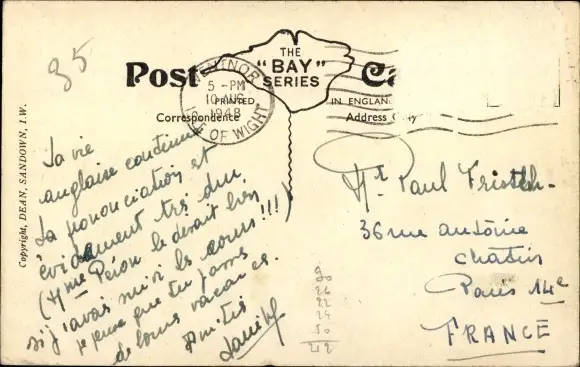 35
Post Ca
THE
"BAY"
SERIES
VENTNOR
5 -PM
10 AUG
1948
ISLE OF WIGHT
PRINTED IN ENGLAND
Correspondence Address Only
Copyright, DEAN, SANDOWN, I.W.
La vie
anglaise continue
La prononciation est
évidemment très dur
(Mme Péron le dirait bien
si j'avais suivi les cours!!!)
je pense que tu passes
de bonnes vacances.
Amitiés
Mr Paul
36 rue antoine
chatin
Paris 14e
FRANCE
90
26
22
24
50
212